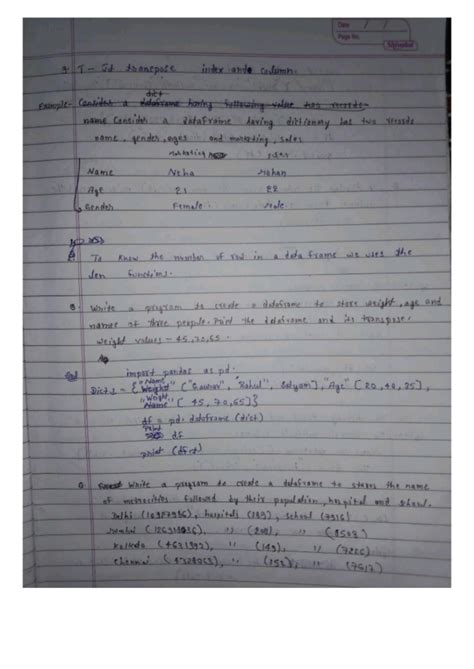 Date / /
Page No.
T - It transpose index and column.
Example- Consider a dict dataframe having following value two records
name Consider a dataframe having dictionary has two records
name, gender, ages and marketing, sales
marketing sales
Name Neha Mohan
Age 21 22
Gender Female Male
To know the number of row in a data frame we uses the
len functions.
Q. Write a program to create a dataframe to store weight, age and
names of three people. Print the dataframe and its transpose.
weight values - 45, 70, 65.
Sol import pandas as pd.
Dict = { "Name" ["Gaurav", "Rahul", Satyam], "Age" [20, 42, 25],
"Weight" [45, 70, 65]}
df = pd. dataframe (dict)
Print df
print (df.t)
Q. Write a program to create a dataframe to stores the name
of metrocities followed by their population, hospital and school.
Delhi hospitals (189), school (7916)
Mumbai " (208), " (8508)
Kolkata " (149), " (7226)
Chennai " " (7617)